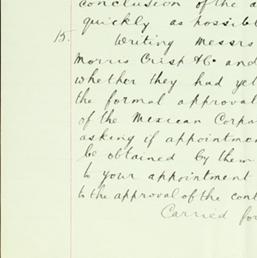 conclusion of the a
quickly as possibl
15. Writing Messrs
Morris Crisp & Co. and
whether they had yet
the formal approval
of the Mexican Corpo
asking if appointmen
be obtained by them
to your appointment
to the approval of the cont
Carried for